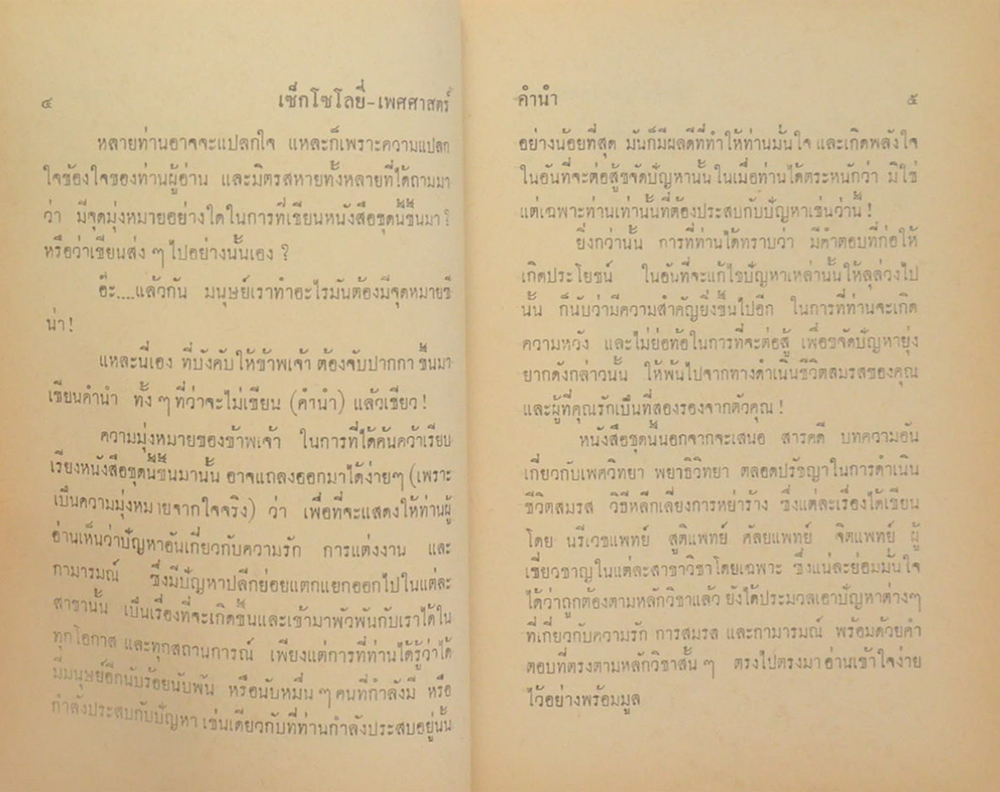 ๔ เซ็กโซโลยี่-เพศศาสตร์
หลายท่านอาจจะแปลกใจ แหละก็เพราะความแปลก
ใจข้องใจของท่านผู้อ่าน และมิตรสหายทั้งหลายที่ได้ถามมา
ว่า มีจุดมุ่งหมายอย่างใดในการที่เขียนหนังสือชุดนี้ขึ้นมา?
หรือว่าเขียนส่ง ๆ ไปอย่างนั้นเอง ?
อ๊ะ....แล้วกัน มนุษย์เราทำอะไรมันต้องมีจุดหมายซี
น่า!
แหละนี่เอง ที่บังคับให้ข้าพเจ้า ต้องจับปากกา ขึ้นมา
เขียนคำนำ ทั้ง ๆ ที่ว่าจะไม่เขียน (คำนำ) แล้วเชียว!
ความมุ่งหมายของข้าพเจ้า ในการที่ได้ค้นคว้าเรียบ
เรียงหนังสือชุดนี้ขึ้นมานั้น อาจแถลงออกมาได้ง่ายๆ (เพราะ
เป็นความมุ่งหมายจากใจจริง) ว่า เพื่อที่จะแสดงให้ท่านผู้
อ่านเห็นว่าปัญหาอันเกี่ยวกับความรัก การแต่งงาน และ
กามารมณ์ ซึ่งมีปัญหาปลีกย่อยแตกแยกออกไปในแต่ละ
สาขานั้น เป็นเรื่องที่จะเกิดขึ้นและเข้ามาพัวพันกับเราได้ใน
ทุกโอกาส และทุกสถานการณ์ เพียงแต่การที่ท่านได้รู้ว่าได้
มีมนุษย์อีกนับร้อยนับพัน หรือนับหมื่น ๆ คนที่กำลังมี หรือ
กำลังประสบกับปัญหา เช่นเดียวกับที่ท่านกำลังประสบอยู่นั้น
คำนำ ๕
อย่างน้อยที่สุด มันก็มีผลดีที่ทำให้ท่านมั่นใจ และเกิดพลังใจ
ในอันที่จะต่อสู้ขจัดปัญหานั้น ในเมื่อท่านได้ตระหนักว่า มิใช่
แต่เฉพาะท่านเท่านั้นที่ต้องประสบกับปัญหาเช่นว่านี้ !
ยิ่งกว่านั้น การที่ท่านได้ทราบว่า มีคำตอบที่ก่อให้
เกิดประโยชน์ ในอันที่จะแก้ไขปัญหาเหล่านั้นให้ลุล่วงไป
นั้น ก็นับว่ามีความสำคัญยิ่งขึ้นไปอีก ในการที่ท่านจะเกิด
ความหวัง และไม่ย่อท้อในการที่จะต่อสู้ เพื่อขจัดปัญหายุ่ง
ยากดังกล่าวนั้น ให้พ้นไปจากทางดำเนินชีวิตสมรสของคุณ
และผู้ที่คุณรักเป็นที่สองรองจากตัวคุณ !
หนังสือชุดนี้นอกจากจะเสนอ สารคดี บทความอัน
เกี่ยวกับเพศวิทยา พยาธิวิทยา ตลอดปรัชญาในการดำเนิน
ชีวิตสมรส วิธีหลีกเลี่ยงการหย่าร้าง ซึ่งแต่ละเรื่องได้เขียน
โดย นรีเวชแพทย์ สูติแพทย์ ศัลยแพทย์ จิตแพทย์ ผู้
เชี่ยวชาญในแต่ละสาขาวิชาโดยเฉพาะ ซึ่งแน่ละย่อมมั่นใจ
ได้ว่าถูกต้องตามหลักวิชาแล้ว ยังได้ประมวลเอาปัญหาต่างๆ
ที่เกี่ยวกับความรัก การสมรส และกามารมณ์ พร้อมด้วยคำ
ตอบที่ตรงตามหลักวิชาสั้น ๆ ตรงไปตรงมา อ่านเข้าใจง่าย
ไว้อย่างพร้อมมูล